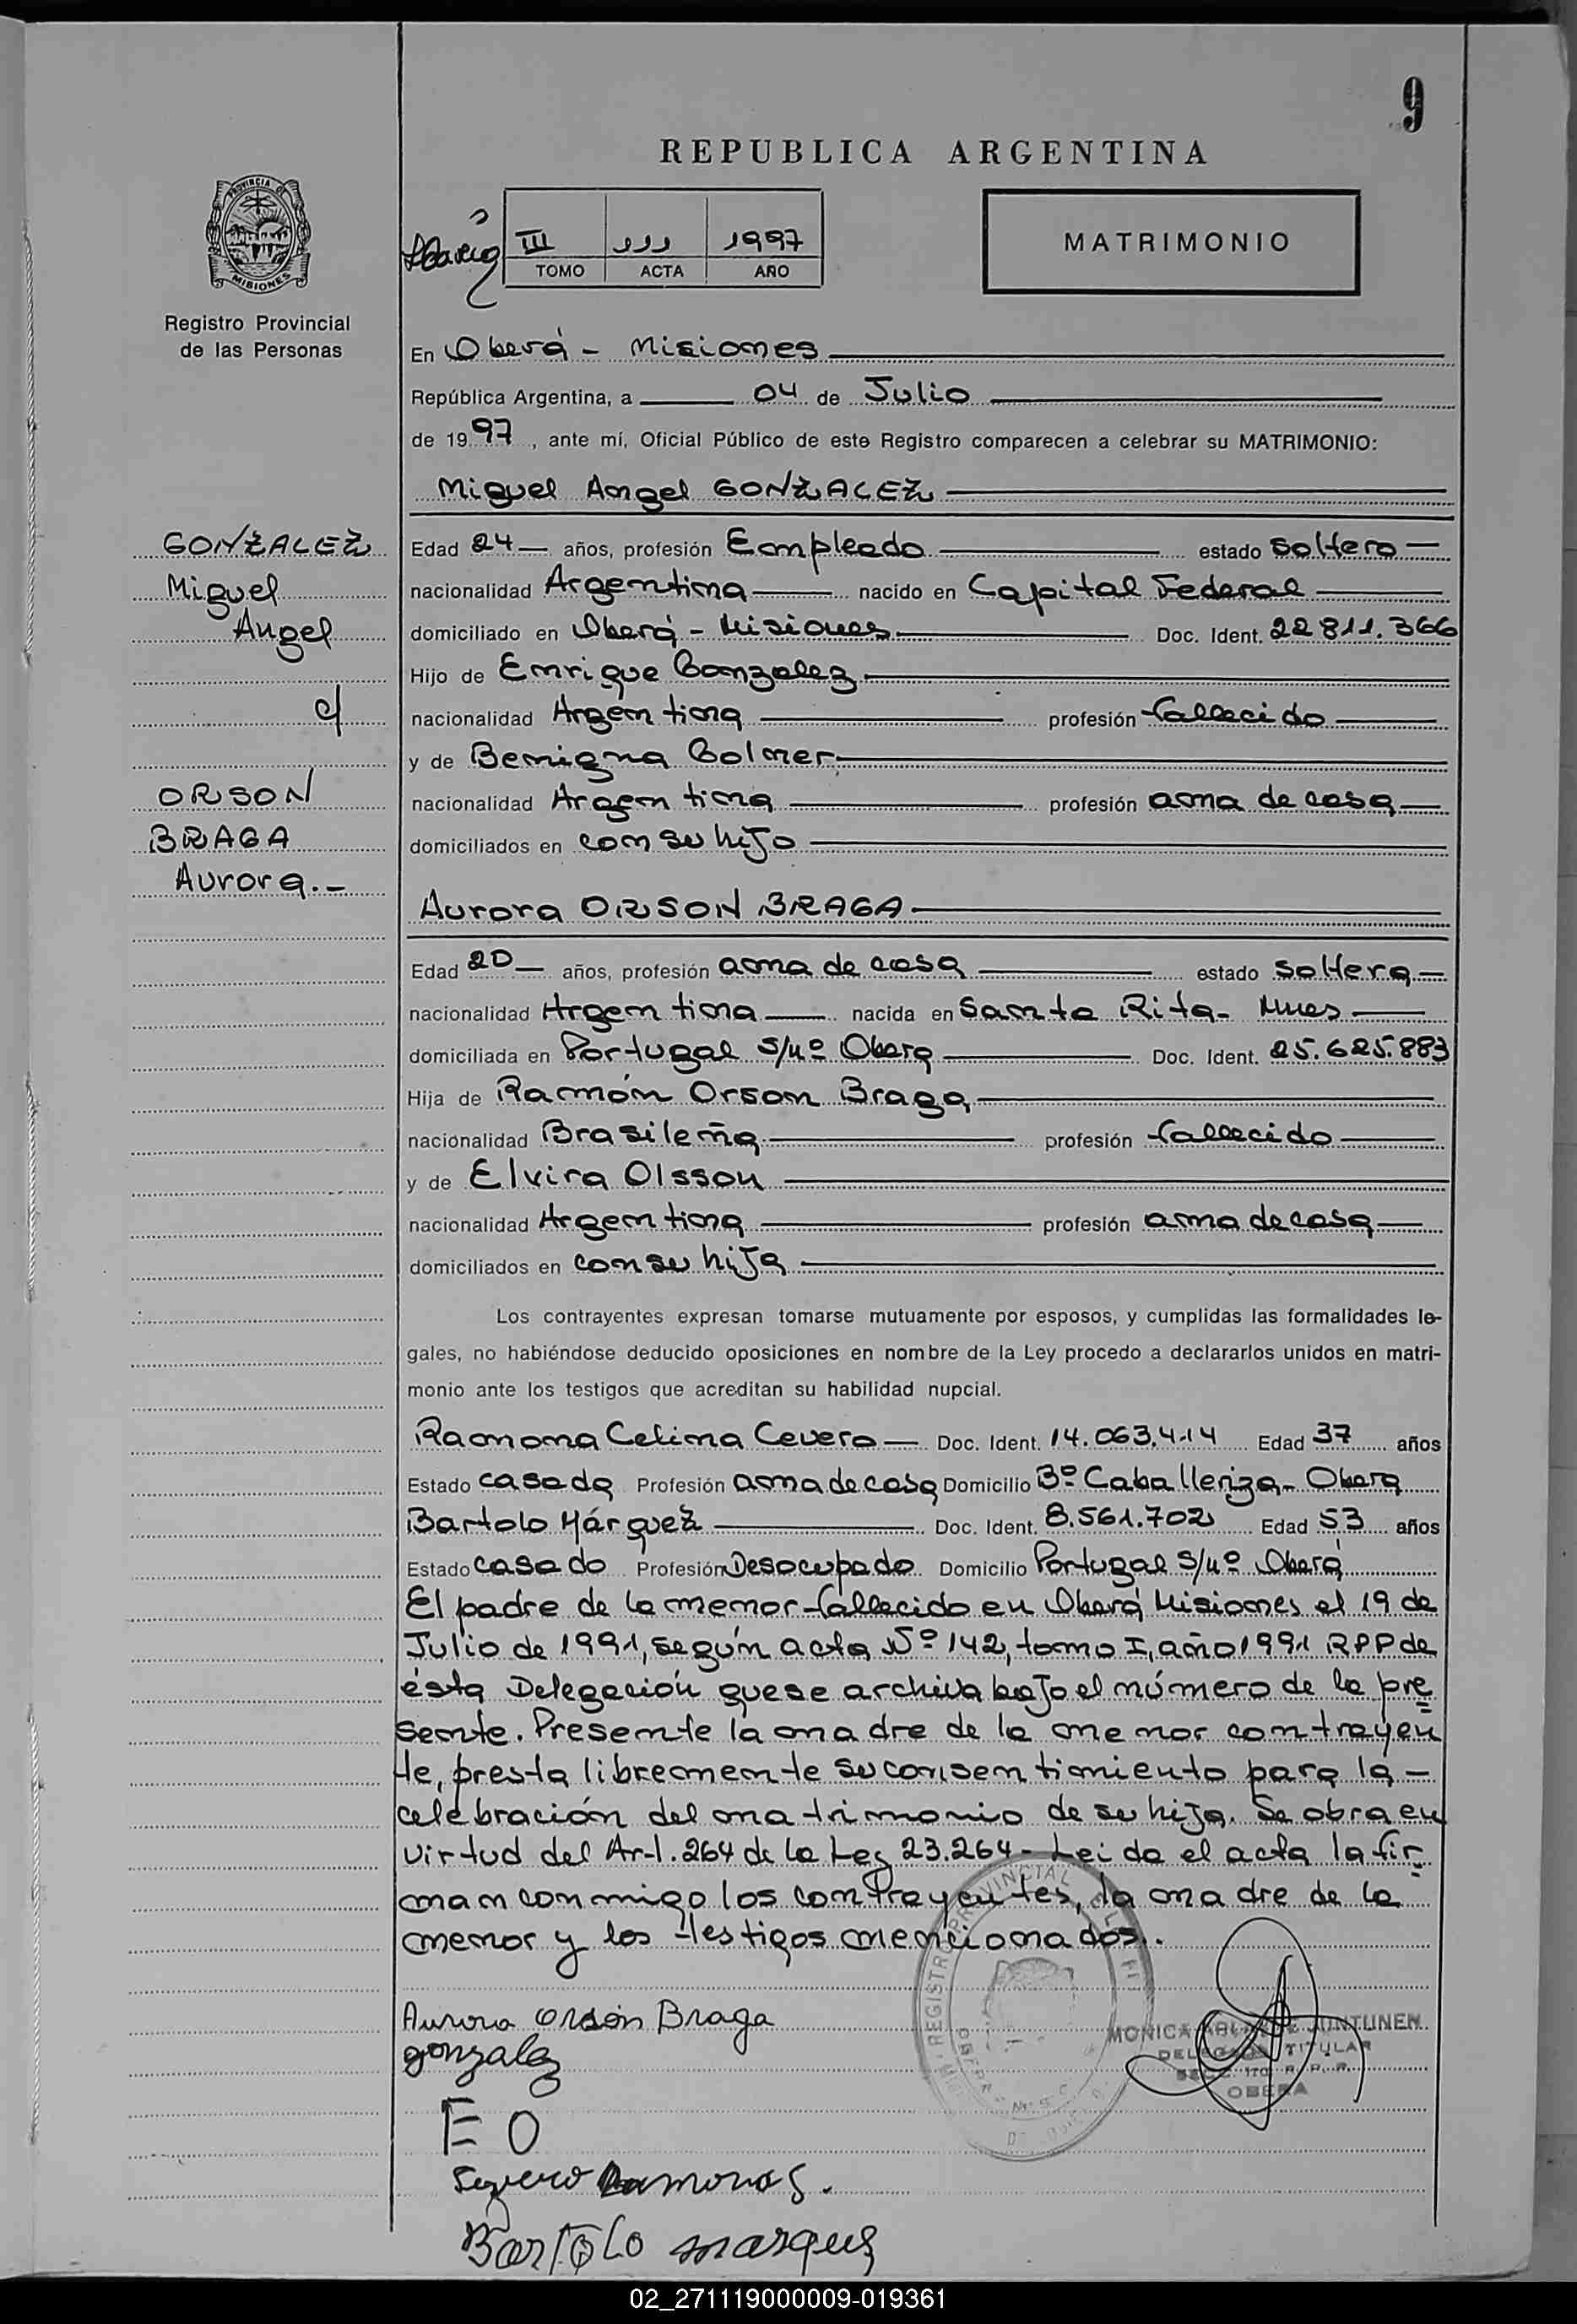 9
REPUBLICA ARGENTINA
PROVINCIA DE
MISIONES
Registro Provincial
de las Personas
III 111 1997
TOMO ACTA AÑO
MATRIMONIO
En Oberá - Misiones
República Argentina, a 04 de Julio
de 1997, ante mí, Oficial Público de este Registro comparecen a celebrar su MATRIMONIO:
Miguel Angel GONZALEZ
GONZALEZ
Miguel
Angel
c/
ORSON
BRAGA
Aurora.-
Edad 24 años, profesión Empleado estado soltero
nacionalidad Argentina nacido en Capital Federal
domiciliado en Oberá - Misiones Doc. Ident. 22811.366
Hijo de Enrique Gonzalez
nacionalidad Argentina profesión fallecido
y de Benigna Golmer
nacionalidad Argentina profesión ama de casa
domiciliados en con su hijo
Aurora ORSON BRAGA
Edad 20 años, profesión ama de casa estado soltera
nacionalidad Argentina nacida en Santa Rita- Mnes
domiciliada en Portugal s/nº Oberá Doc. Ident. 25.625.883
Hija de Ramón Orson Braga
nacionalidad Brasileña profesión fallecido
y de Elvira Olsson
nacionalidad Argentina profesión ama de casa
domiciliados en con su hija
Los contrayentes expresan tomarse mutuamente por esposos, y cumplidas las formalidades le-
gales, no habiéndose deducido oposiciones en nombre de la Ley procedo a declararlos unidos en matri-
monio ante los testigos que acreditan su habilidad nupcial.
Ramona Celina Cevero Doc. Ident. 14.063.414 Edad 37 años
Estado casada Profesión ama de casa Domicilio Bº Caballeriza- Oberá
Bartolo Márquez Doc. Ident. 8.561.702 Edad 53 años
Estado casado Profesión Desocupado Domicilio Portugal s/nº Oberá
El padre de la menor fallecido en Oberá Misiones el 19 de
Julio de 1991, según acta Nº 142, tomo I, año 1991 RPP de
ésta Delegación que se archiva bajo el número de la pre
sente. Presente la madre de la menor contrayen
te, presta libremente su consentimiento para la -
celebración del matrimonio de su hija. Se obra en
virtud del Art. 264 de la Ley 23.264- Leida el acta la fir
man conmigo los contrayentes, la madre de la
menor y los testigos mencionados.
Aurora Orson Braga
gonzalez
MONICA JUNTUNEN
DELEGADA TITULAR
OBERA
E O
Severo Ramona S.
Bartolo marques
02_271119000009-019361